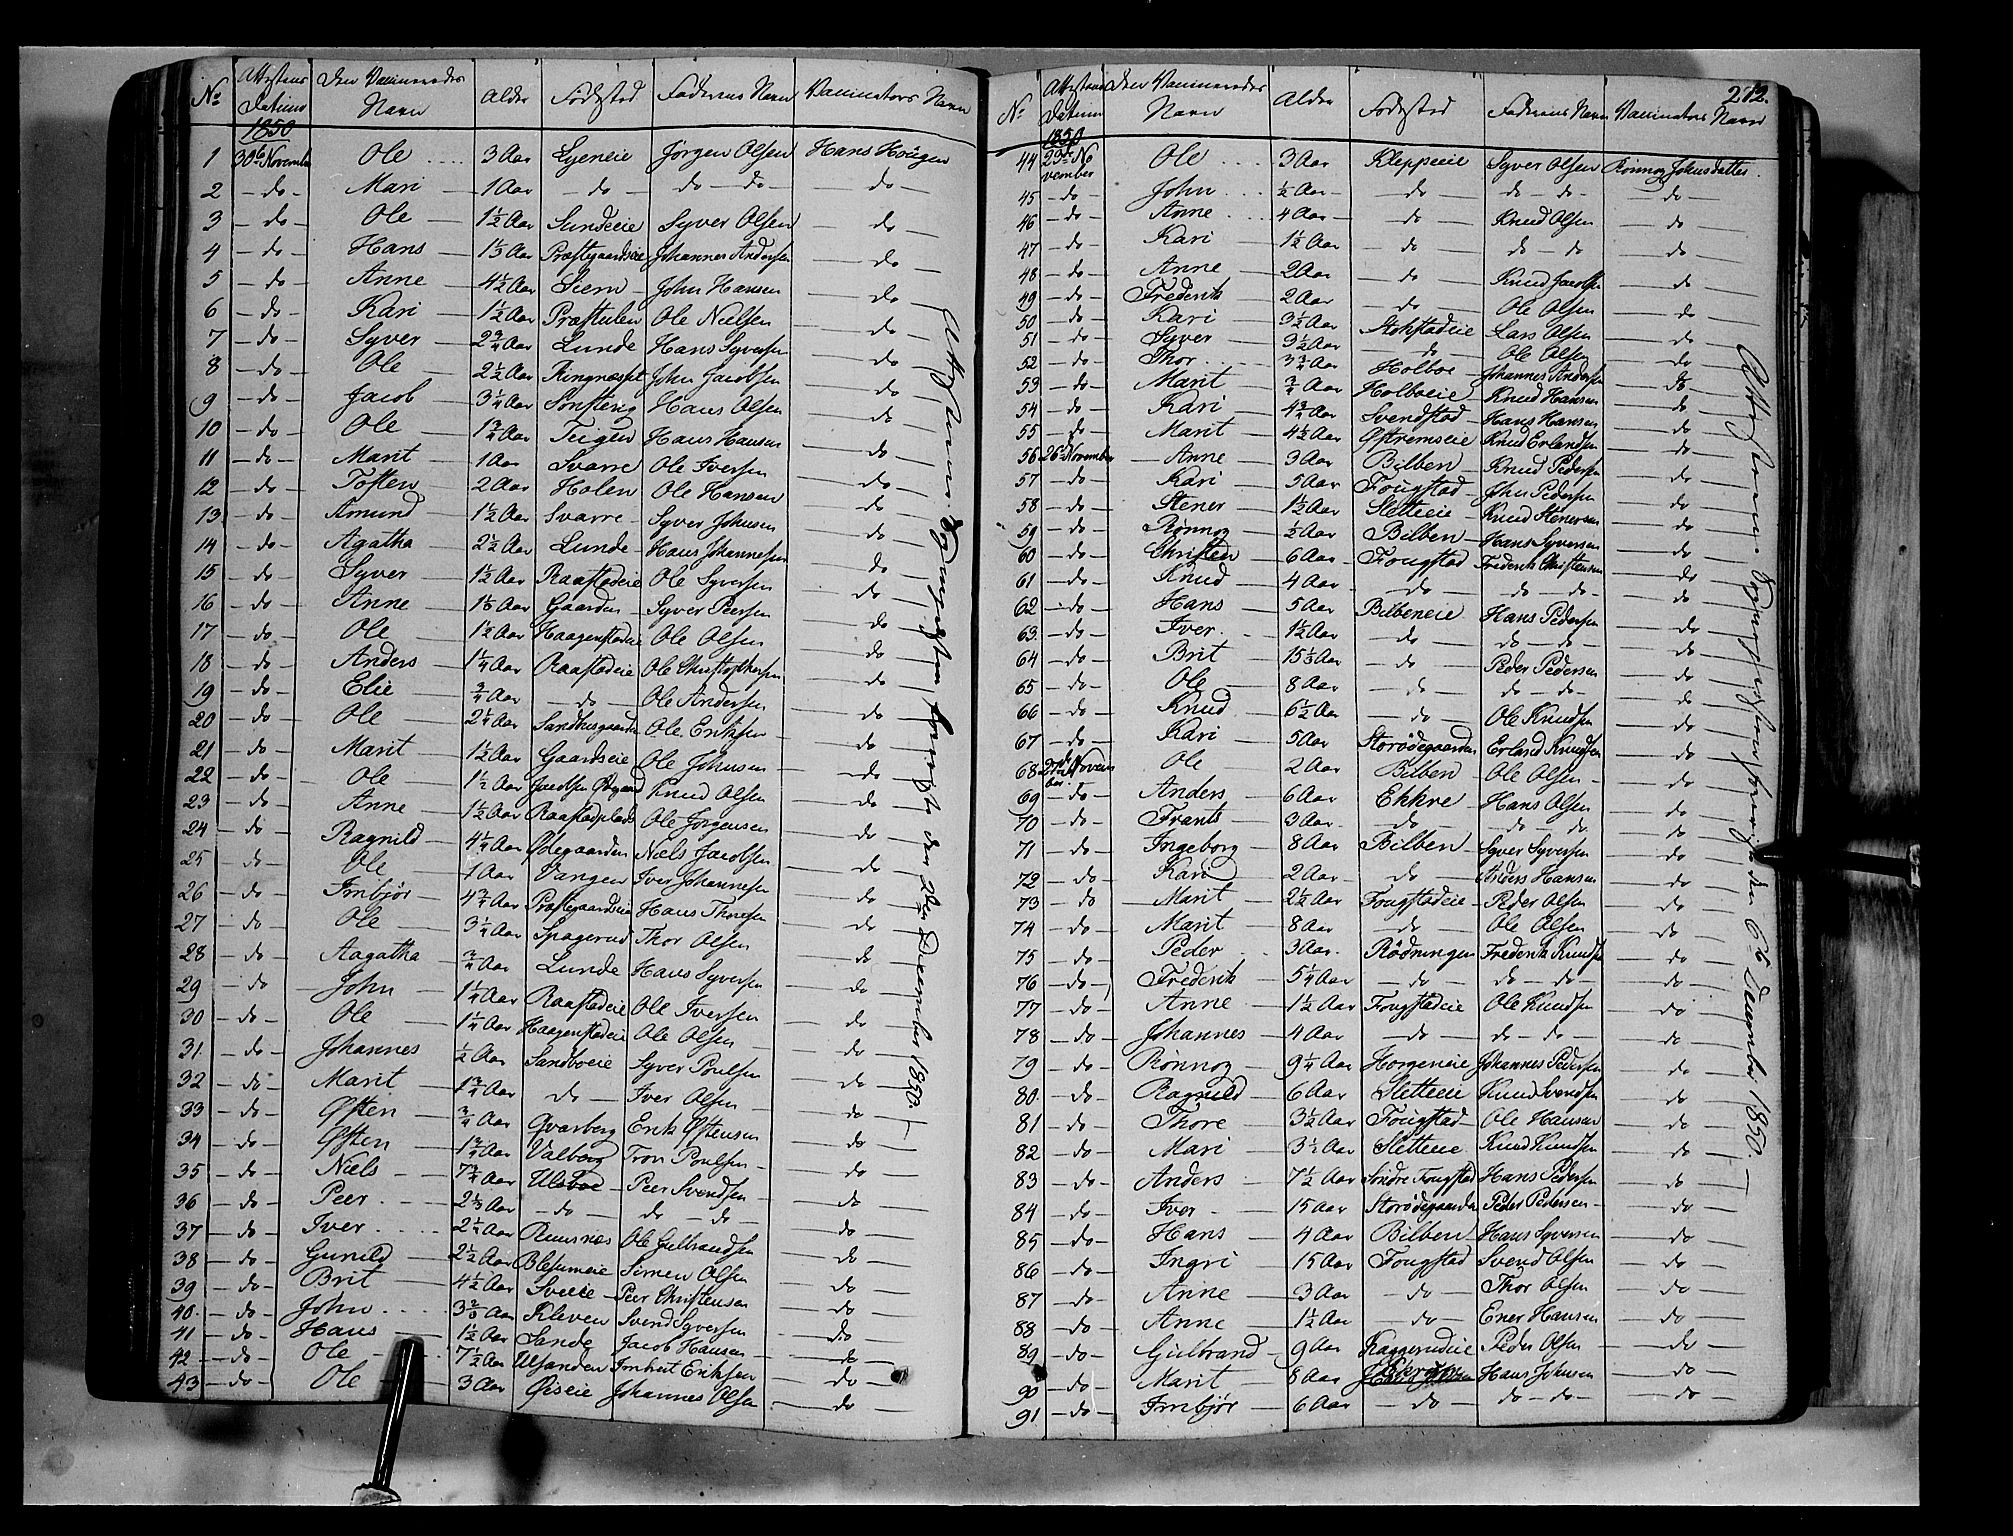 No Attestens Datum Den Vaccineredes Navn Alder Födested Faderens Navn Vaccinators Navn
1850
1 30te November Ole 3 Aar Jörgen Olsen Hans Höugen
2 do Mari 1 Aar do do do do
3 do Ole 1½ Aar Sundeeie Syver Olsen do
4 do Hans 1⅓ Aar Præstegaardseie Johannes Andersen do
5 do Anne 4½ Aar Siem John Hansen do
6 do Kari 1½ Aar Præstulen Ole Nielsen do
7 do Syver 2¾ Aar Lunde Hans Syversen do
8 do Ole 2½ Aar John Jacobsen do
9 do Jacob 3¼ Aar Sonsteng Hans Olsen do
10 do Ole 1¾ Aar Hans Hansen do
11 do Marit 1 Aar Svarre Ole Iversen do
12 do Tosten 2 Aar Holen Ole Hansen do
13 do Amund 1½ Aar Svarre Syver Johnsen do
14 do Agatha 2½ Aar Lunde Hans Johannesen do
15 do Syver 1½ Aar Raastadeie Ole Syversen do
16 do Anne Gaarden Syver Peersen do
17 do Ole 1½ Aar Haagenstadeie Ole Olsen do
18 do Anders 1¼ Aar Raastadeie Ole Christophersen do
19 do Elie ¾ Aar do Ole Andersen do
20 do Ole 2¼ Aar Sandhusgaarden Ole Eriksen do
21 do Marit 1½ Aar Gaardseie Ole Johnsen do
22 do Ole 1½ Aar Knud Olsen do
23 do Anne 1½ Aar Raastadplads Ole Jörgensen do
24 do Ragnild 4¼ Aar Ødegaarden Niels Jacobsen do
25 do Ole 1 Aar Vangen Iver Johannesen do
26 do Imbjör 4¾ Aar Præstegaardseie Hans Thoresen do
27 do Ole 3¼ Aar Spagerud Thor Olsen do
28 do Aagatha ¾ Aar Lunde Hans Syversen do
29 do John 1¼ Aar Raastadeie Ole Iversen do
30 do Ole 1¼ Aar Haagenstadeie Ole Olsen do
31 do Johannes ½ Aar Sandboeie Syver Poulsen do
32 do Marit 1¾ Aar do Iver Olsen do
33 do Østen ¾ Aar Qvarberg Erik Østensen do
34 do Østen 1¾ Aar Valberg Tron Poulsen do
35 do Niels 7¾ Aar Ulsboe Peer Svendsen do
36 do Peer 2⅔ Aar do do do do
37 do Iver 2¼ Aar Ruusnæs Ole Gulbrandsen do
38 do Gunild 2½ Aar Blesumeie Simen Olsen do
39 do Brit 4½ Aar Sveeie Peer Christensen do
40 do John 3⅔ Aar Kleven Svend Syversen do
41 do Hans 1½ Aar Sande Jacob Hansen do
42 do Ole 7½ Aar Ulsanden Imbert Eriksen do
43 do Ole 3 Aar Øiseie Johannes Olsen do
Attesterne December 1850
272.
No Attestens Datum Den Vaccineredes Navn Alder Fodested Faderens Navn Vaccinators Navn
1850
44 23de November Ole 3 Aar Kleppeeie Syver Olsen Rönnog Johnsdatter
45 do John ½ Aar do do do do
46 do Anne 4 Aar do Knud Olsen do
47 do Kari 1½ Aar do do do do
48 do Anne 2 Aar do Knud Jacobsen do
49 do Frederik 2 Aar do Ole Olsen do
50 do Kari 3½ Aar Stokstadeie Lars Olsen do
51 do Syver 3½ Aar do Ole Olsen do
52 do Thor 3¾ Aar Holboe Johannes Andersen do
53 do Marit ¾ Aar Holboeie Knud Hansen do
54 do Kari 4¾ Aar Svendstad Hans Hansen do
55 do Marit 4½ Aar Østremseie Knud Erlandsen do
56 26de November Anne 3 Aar Bilben Knud Pedersen do
57 do Kari 5 Aar Fougstad John Pedersen do
58 do Stener 1½ Aar Sletteeie Knud Stenersen do
59 do Rönnog ½ Aar Bilben Hans Syversen do
60 do Christen 6 Aar Fougstad Frederik Christensen do
61 do Knud 4 Aar do do do do
62 do Hans 5 Aar Bilbeneie Hans Pedersen do
63 do Iver 1½ Aar do do do do
64 do Brit 15⅓ Aar do Peder Pedersen do
65 do Ole 8 Aar do do do do
66 do Knud 6½ Aar do Ole Knudsen do
67 do Kari 5 Aar Storödegaarden Erland Knudsen do
68 27de November Ole 2 Aar Bilben Ole Olsen do
69 do Anders 6 Aar Ekkre Hans Olsen do
70 do Frants 3 Aar do do do do
71 do Ingeborg 8 Aar Bilben Syver Syversen do
72 do Kari 2 Aar do Anders Hansen do
73 do Marit 2½ Aar Fougstadeie Peder Olsen do
74 do Marit 8 Aar do Ole Olsen do
75 do Peder 3 Aar Rödningen Frederik Knudsen do
76 do Frederik 5¼ Aar do do do do
77 do Anne 1½ Aar Fougstadeie Ole Knudsen do
78 do Johannes 4 Aar do do do do
79 do Rönnog 9¼ Aar Horgeneie Johannes Pedersen do
80 do Ragnild 6 Aar Sletteeie Knud Svendsen do
81 do Thore 3½ Aar Fougstad Ole Hansen do
82 do Mari 3½ Aar Sletteeie Knud Knudsen do
83 do Anders 7½ Aar Söndre Fougstad Hans Pedersen do
84 do Iver 15 Aar Storödegaarden Peder Pedersen do
85 do Hans 4 Aar Bilben Hans Syversen do
86 do Ingri 15 Aar Fougstad Svend Olsen do
87 do Anne 3 Aar do Thor Olsen do
88 do Anne 1½ Aar do Ener Hansen do
89 do Gulbrand 9 Aar Kaggerudeie Peder Olsen do
90 do Marit 8 Aar Hans Johnsen do
91 do Imbjör 6 Aar do do do do
Attesterne den 6te December 1850